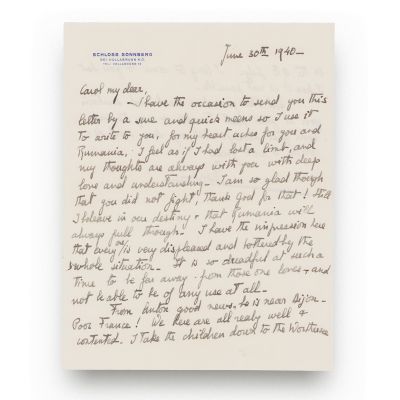 SCHLOSS SONNBERG
BEI HOLLABRUNN N.D.
TEL: HOLLABRUNN 18
June 30TH 1940 —
Carol my dear,
— I have the occasion to send you this
letter by a sure and quick means so I use it
to write to you, for my heart aches for you and
Rumania, I feel as if I had lost a limb, and
my thoughts are always with you with deep
love and understanding — I am so glad though
that you did not fight, thank God for that! Still
I beleave in our destiny & that Rumania will
always pull through — I have the impression here
that every one is very displeased and bothered by the
whole situation — It is so dreadful at such a
time to be far away from those one loves, and
not be able to be of any use at all —
From Anton good news, he is near Dijon —
Poor France! We here are all really well &
contented. I take the children down to the Worthersee